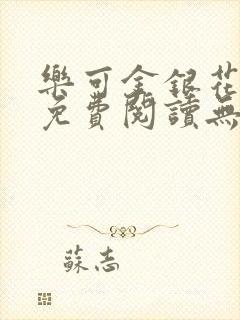 樂可金銀花
免費閱讀無
蘇志